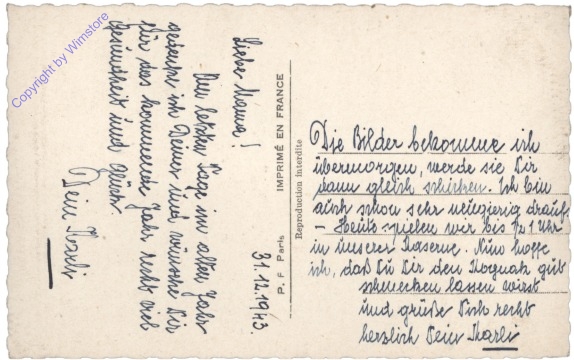 Copyright by Wimstore
31.12.1943
Liebe Mama!
Am letzten Tage im alten Jahr
gedenke ich Deiner und wünsche Dir
für das kommende Jahr recht viel
Gesundheit und Glück.
Dein Karli
P. F. Paris
IMPRIMÉ EN FRANCE
Reproduction interdite
Die Bilder bekomme ich
übermorgen, werde sie Dir
dann gleich schicken. Ich bin
auch schon sehr neugierig drauf.
– Heute spielen wir bis ½ 1 Uhr
in unserer Kaserne. Nun hoffe
ich, daß Du Dir den Kognak gut
schmecken lassen wirst
und grüße Dich recht
herzlich Dein Karli